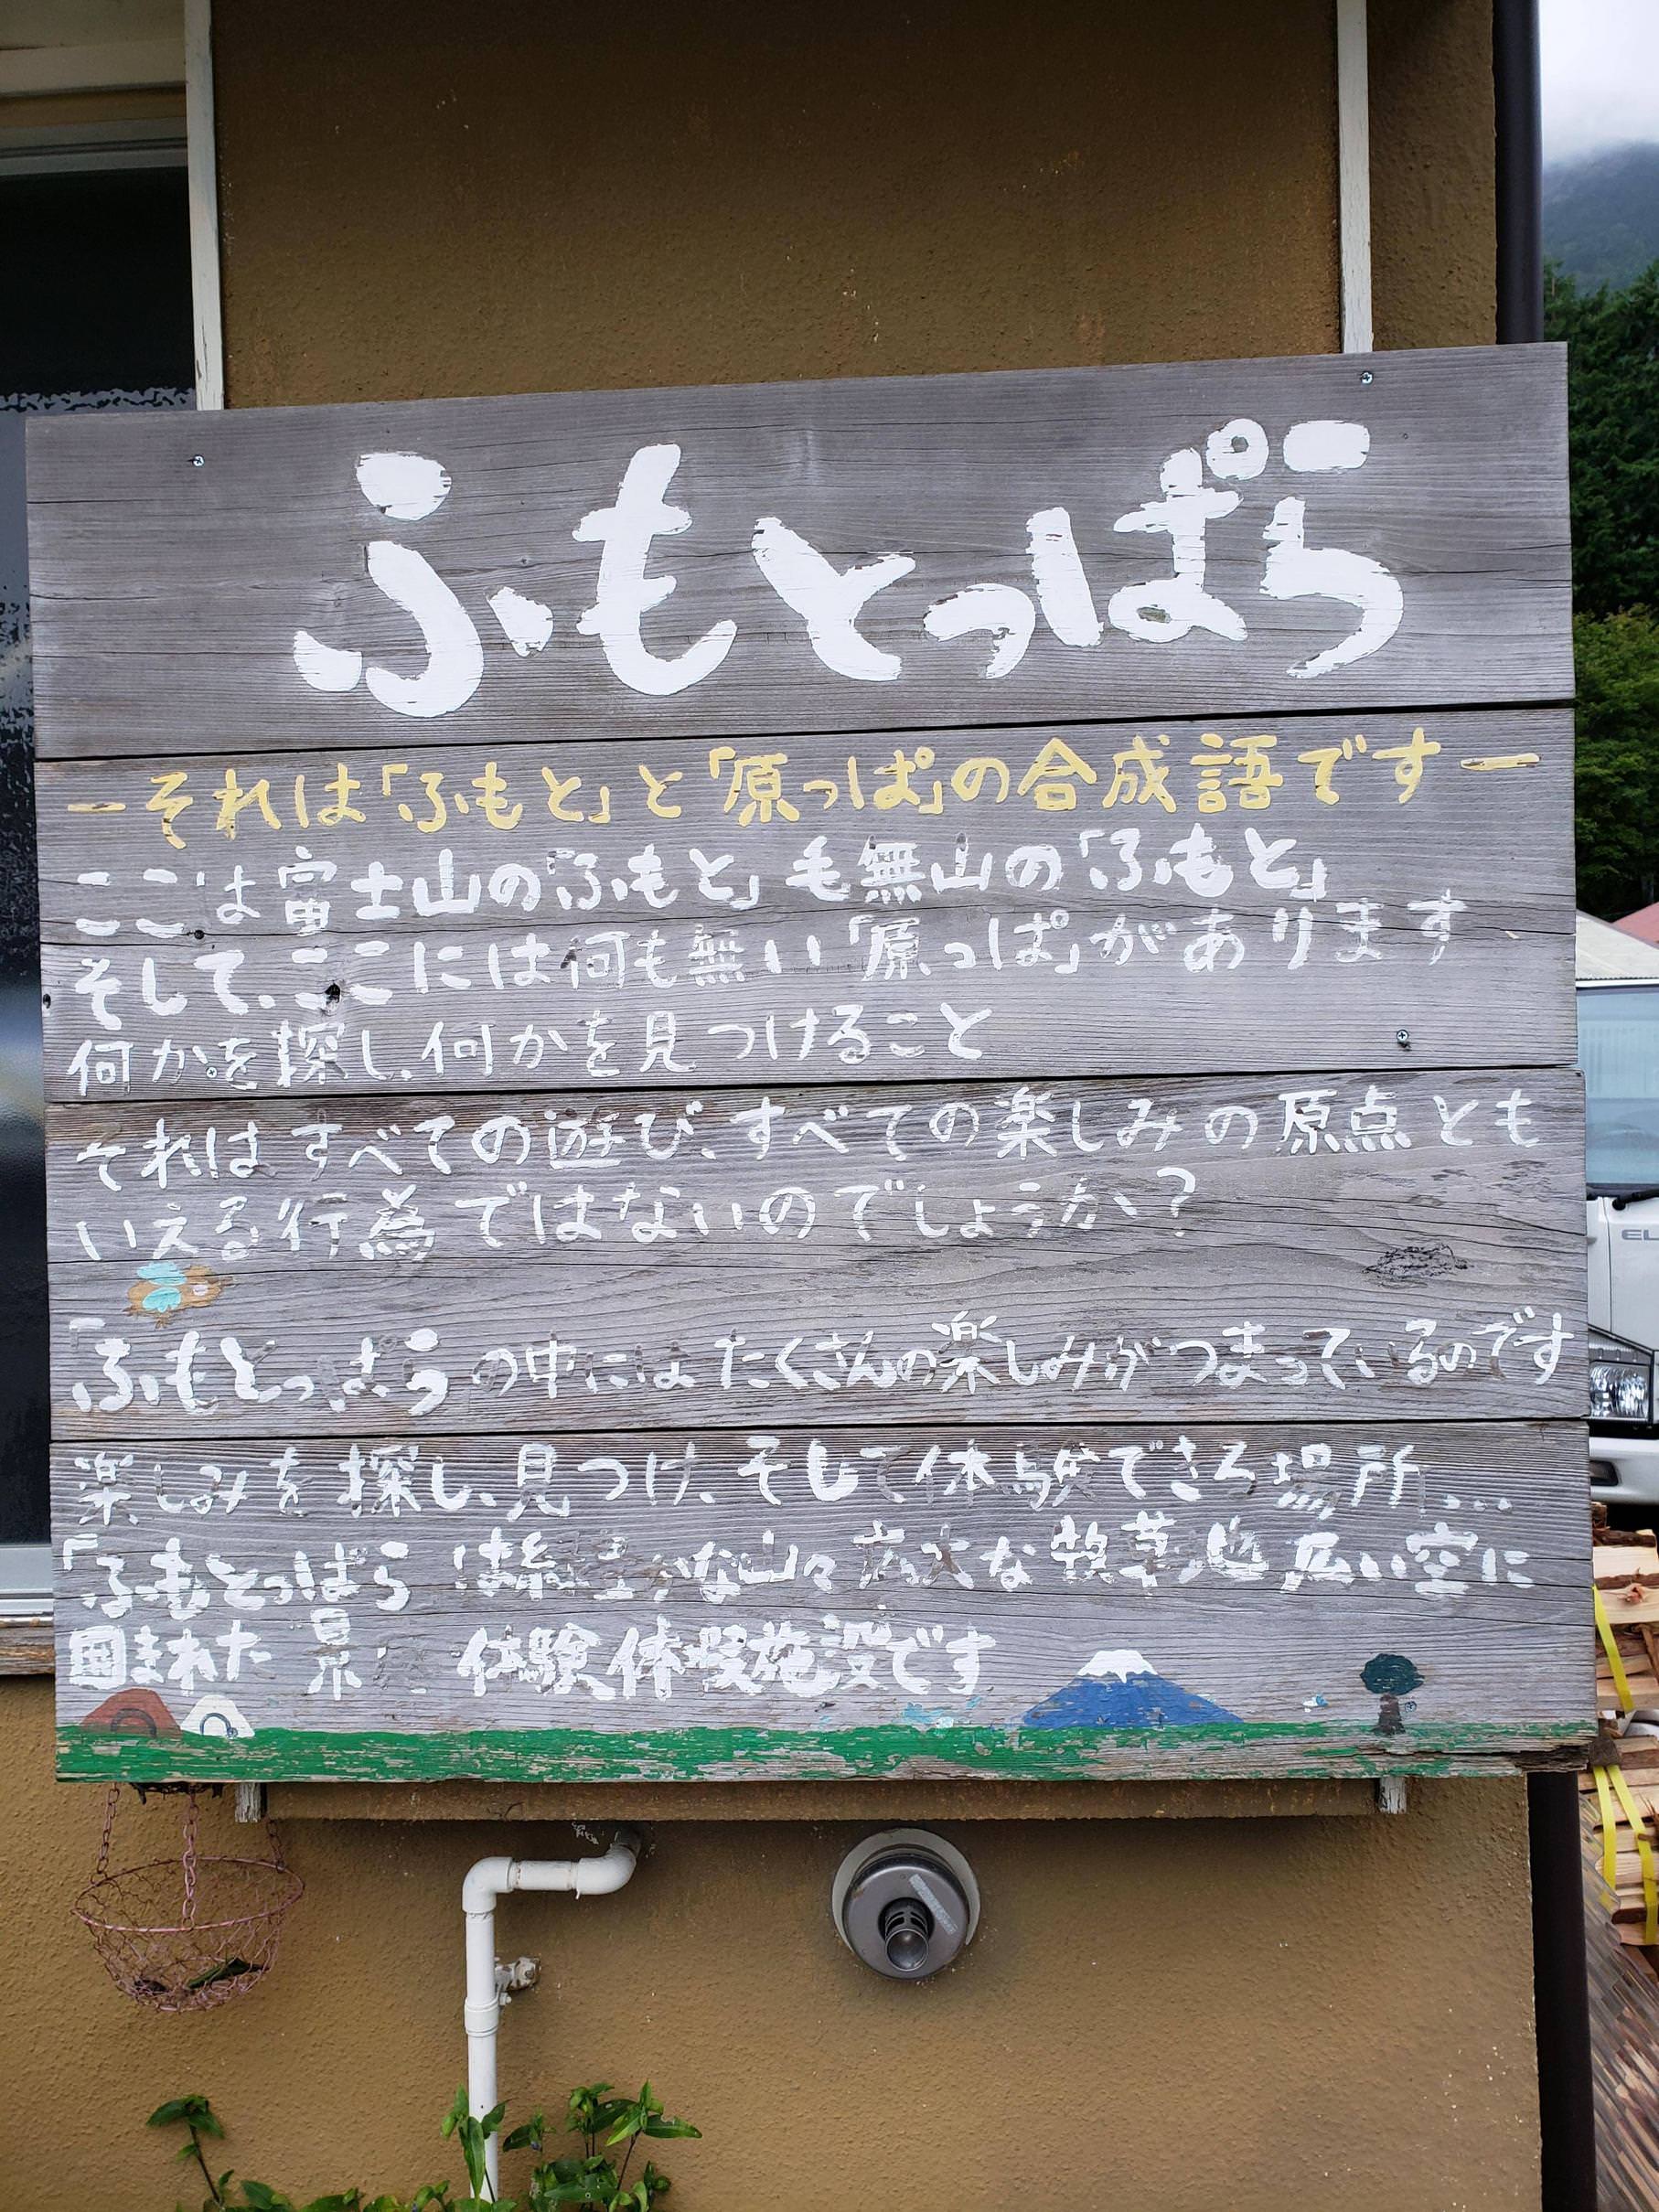 ふもとっぱら
ーそれは「ふもと」と「原っぱ」の合成語ですー
ここは富士山の「ふもと」毛無山の「ふもと」
そして、ここには何も無い「原っぱ」があります
何かを探し、何かを見つけること
それはすべての遊び、すべての楽しみの原点とも
いえる行為ではないのでしょうか?
「ふもとっぱらの中にはたくさんの楽しみがつまっているのです
楽しみを探し、見つけ、そして体験できる場所...
「ふもとっぱら は緑豊かな山々 広大な牧草地 広い空に
囲まれた 体験休暇施設です
EL